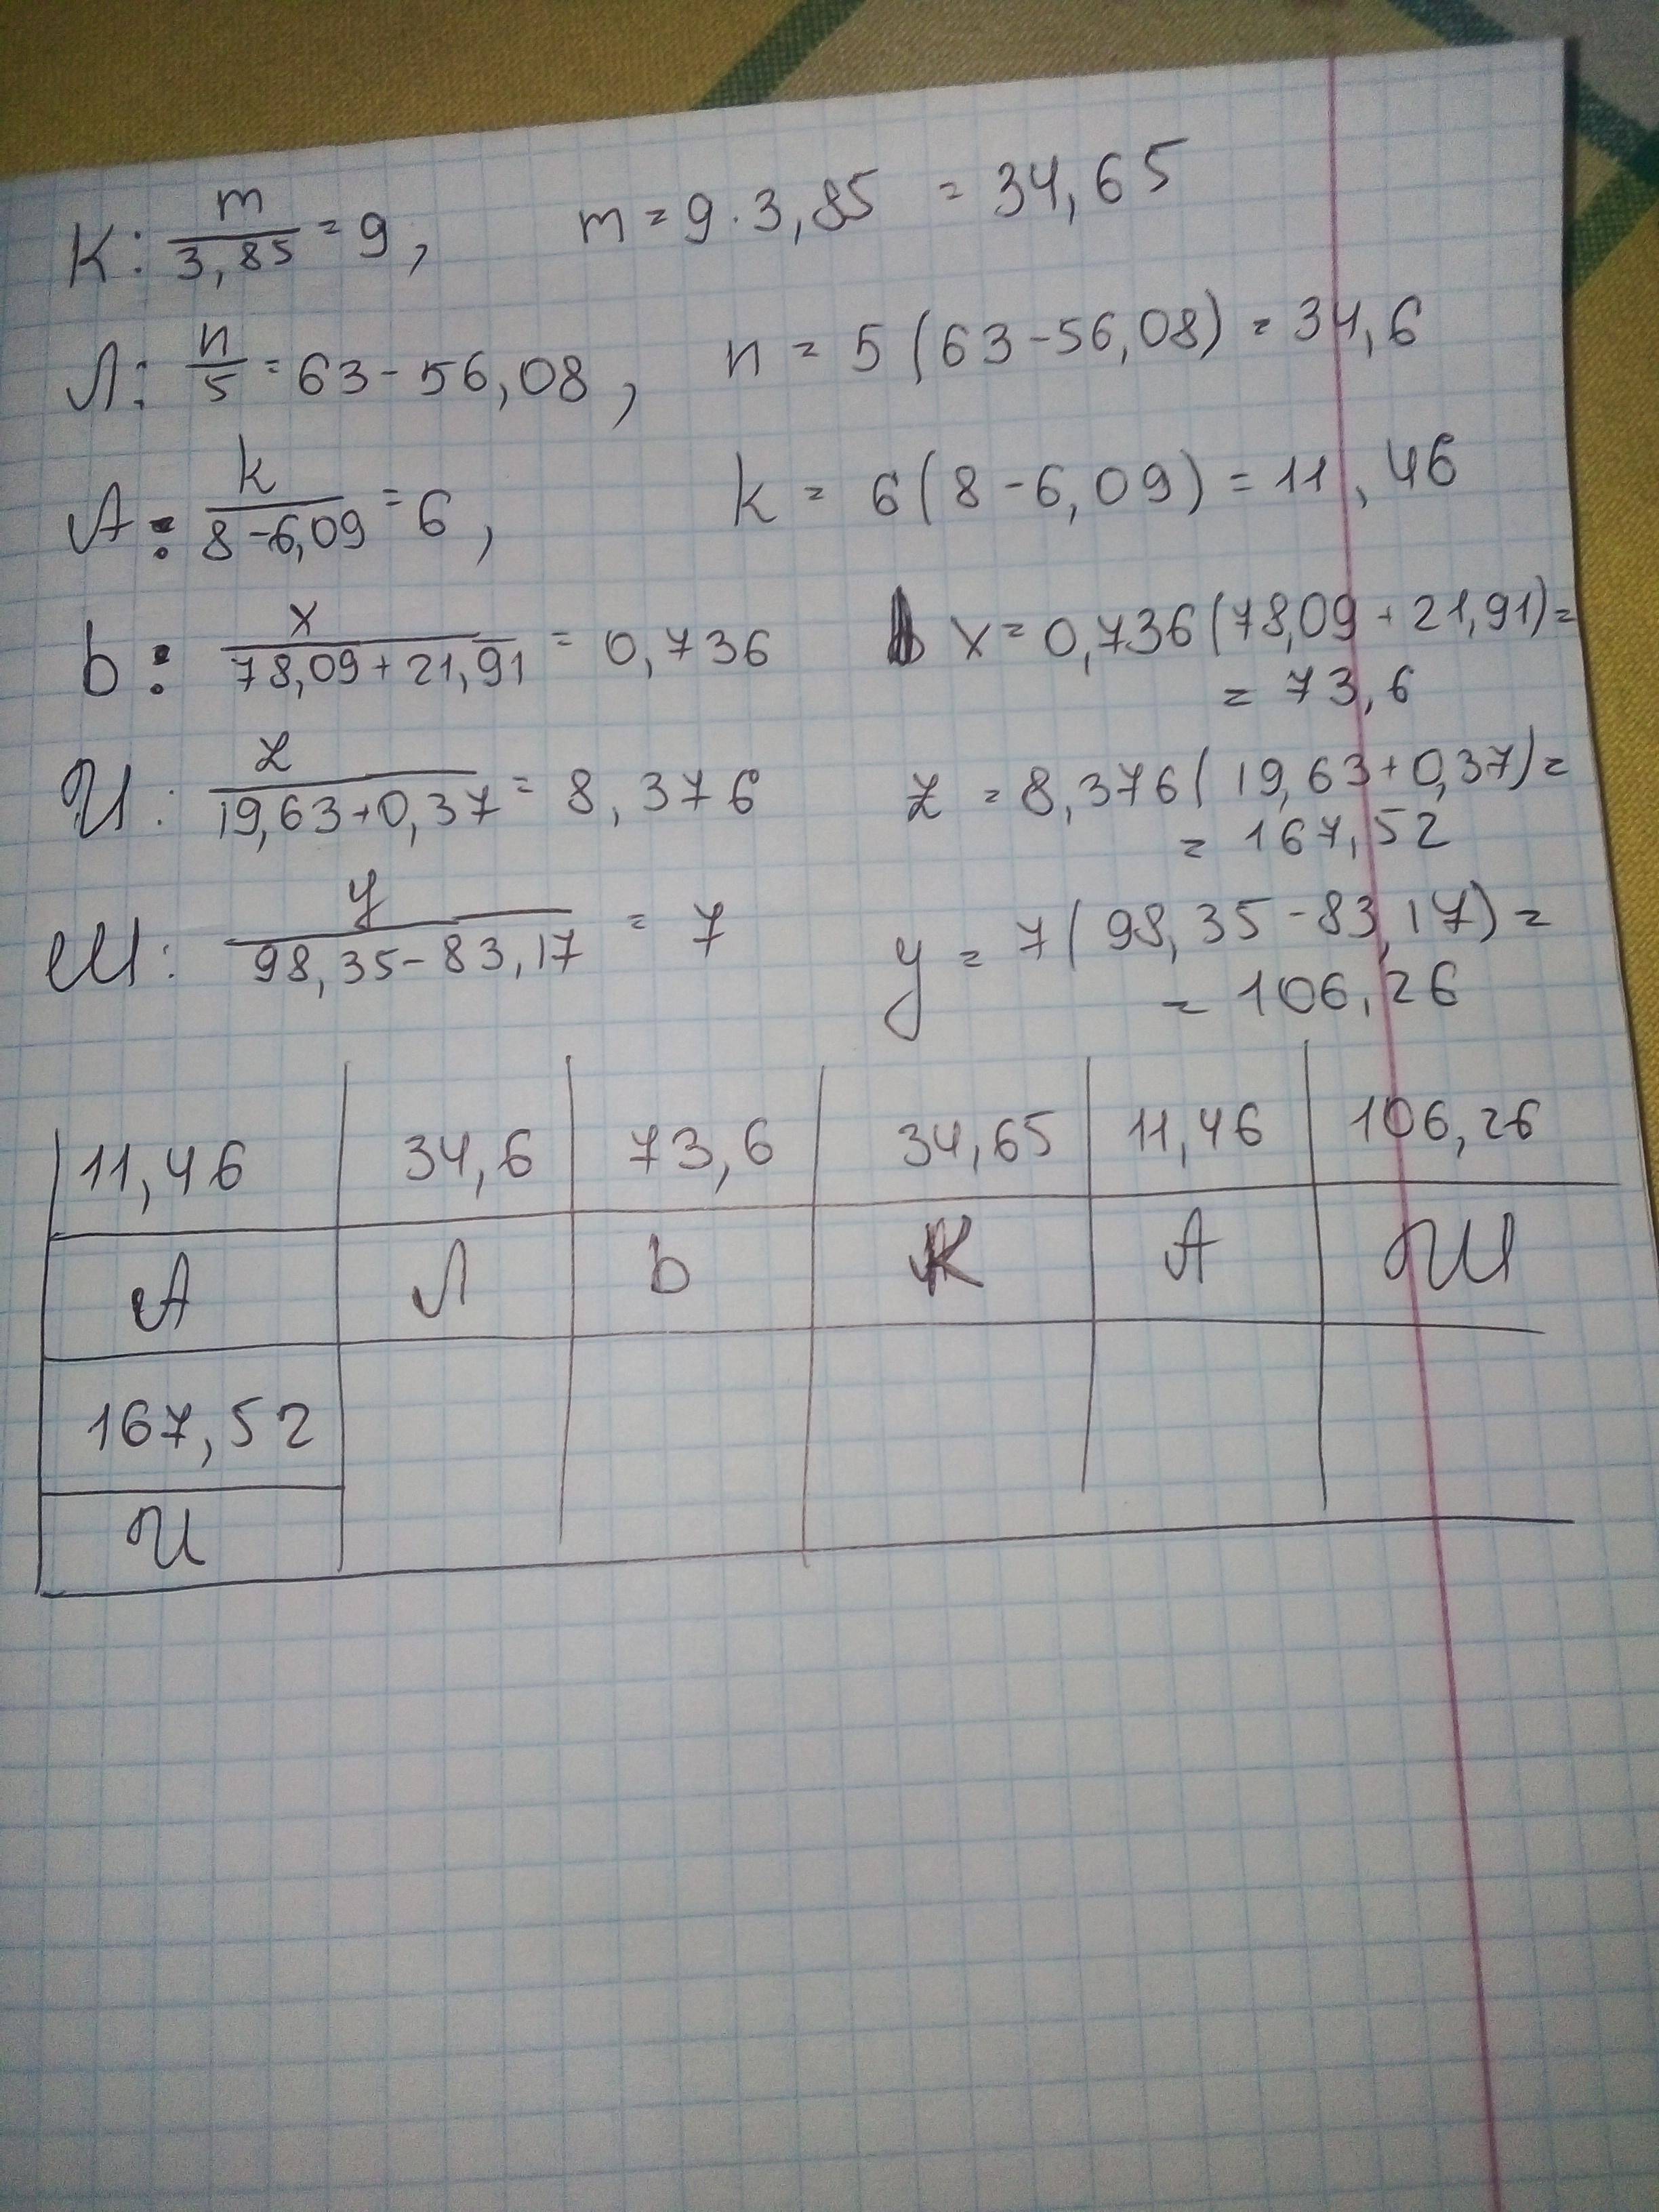 К: m/3,85 = 9, m = 9 · 3,85 = 34,65
Л: n/5 = 63 - 56,08, n = 5(63 - 56,08) = 34,6
А: k/(8 - 6,09) = 6, k = 6(8 - 6,09) = 11,46
ь: x/(78,09 + 21,91) = 0,736 x = 0,736(78,09 + 21,91) =
= 73,6
И: z/(19,63 + 0,37) = 8,376 z = 8,376(19,63 + 0,37) =
= 167,52
Ш: y/(98,35 - 83,17) = 7 y = 7(98,35 - 83,17) =
= 106,26
11,46 34,6 73,6 34,65 11,46 106,26
А Л ь К А Ш
167,52
И